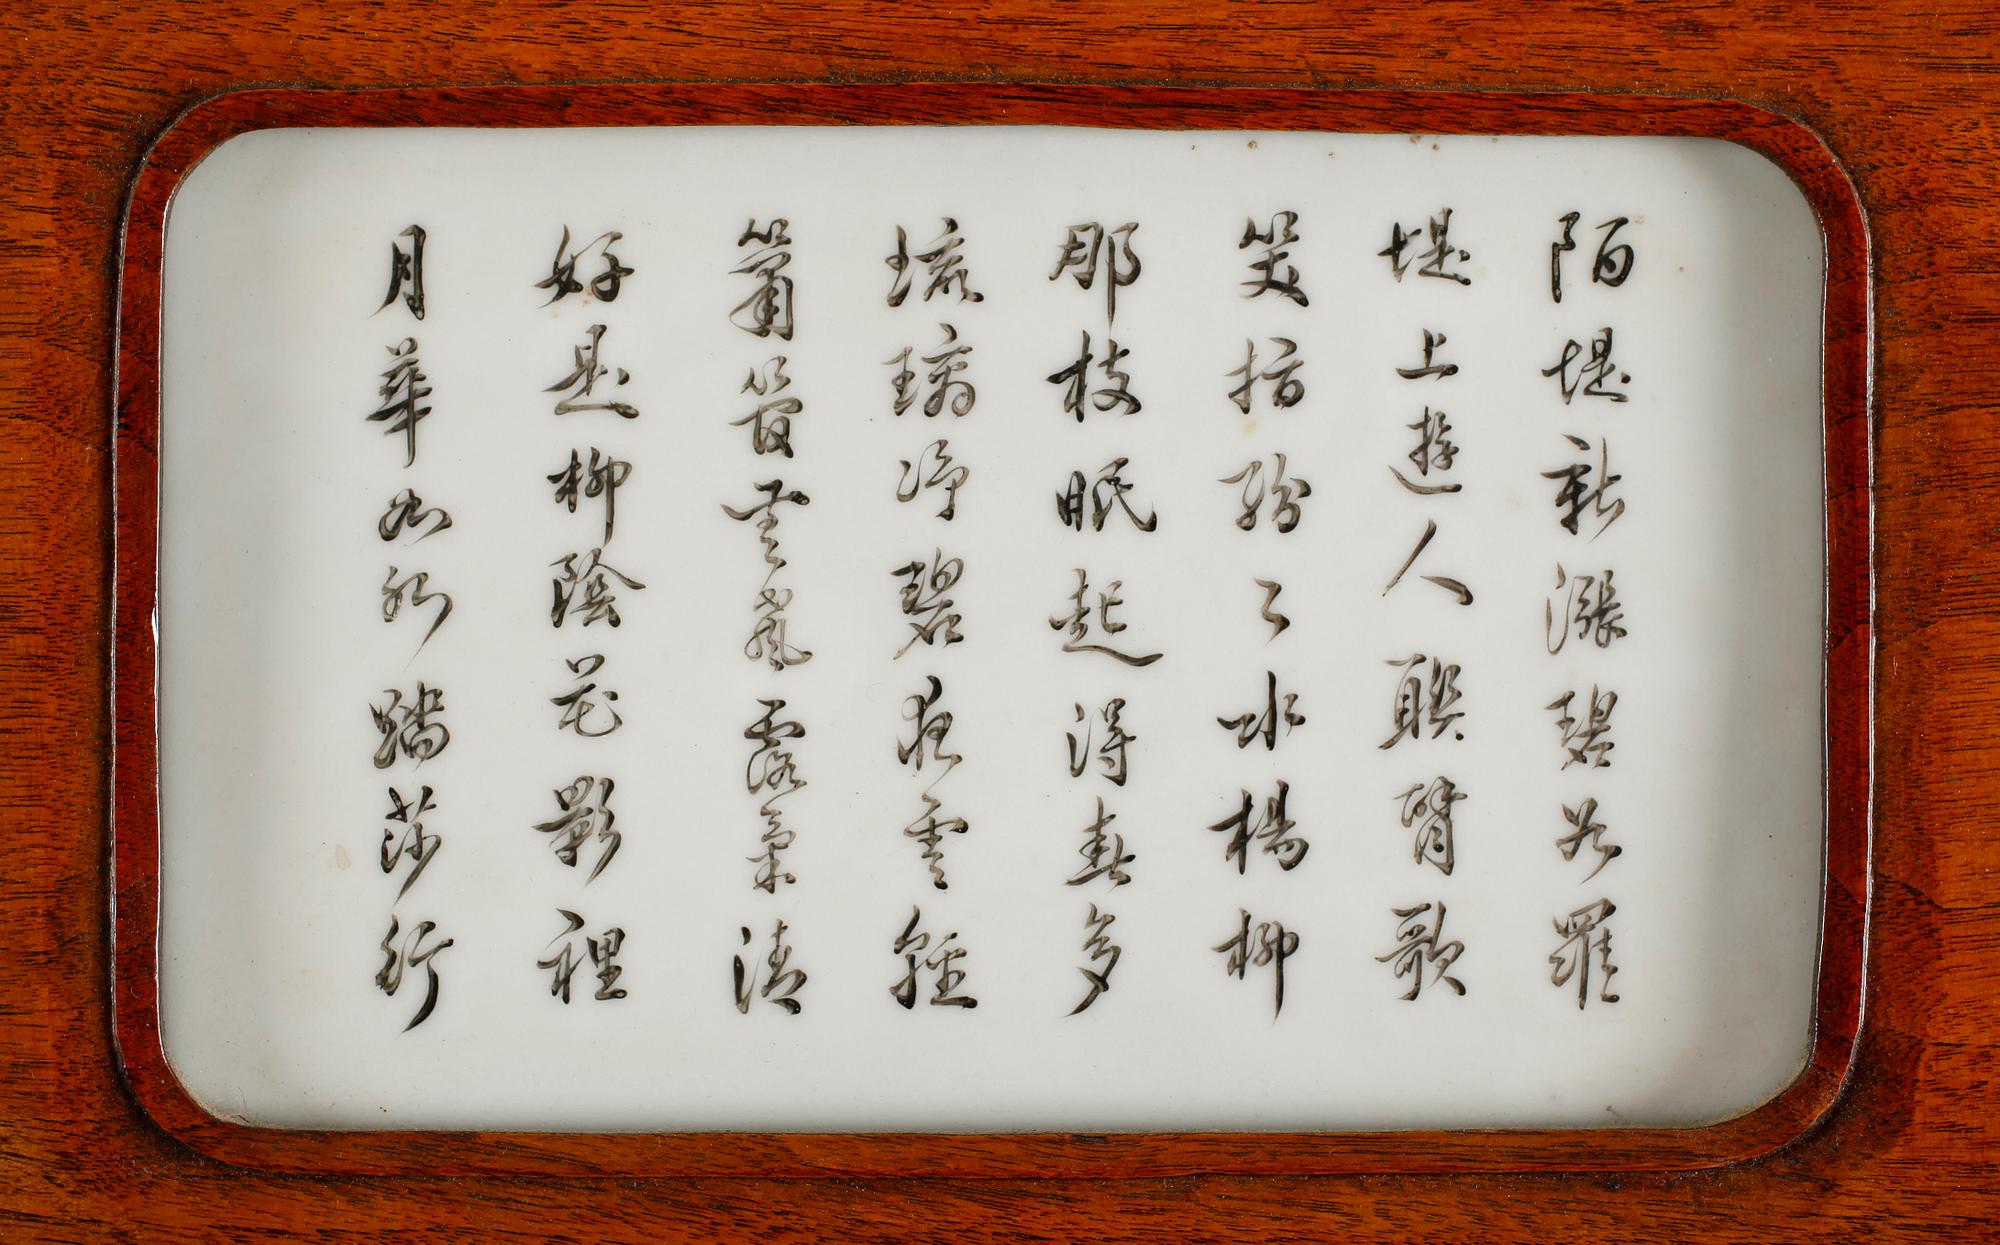 陌堤新漲碧羅
堤上遊人聯臂歌
笑指紛〻水楊柳
那枝眠起得春多
琉璃淨碧夜雲輕
簫管無聲露氣清
好是柳陰花影裡
月華如水踏莎行